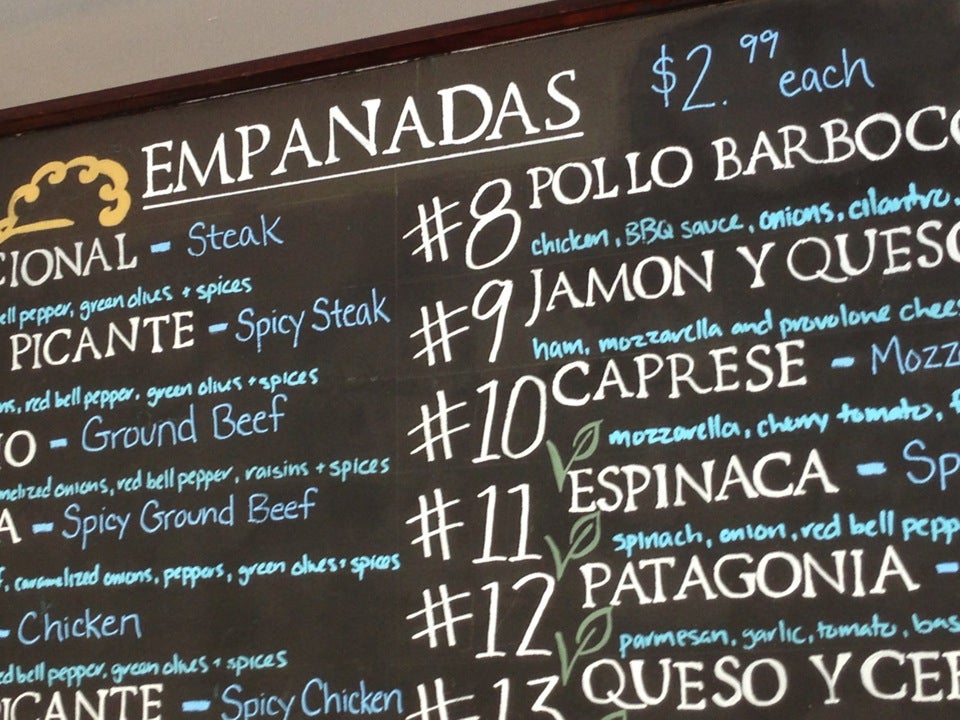 EMPANADAS
$2.99 each
CIONAL - Steak
ell pepper, green olives + spices
PICANTE - Spicy Steak
ns, red bell pepper, green olives + spices
O - Ground Beef
melized onions, red bell pepper, raisins + spices
A - Spicy Ground Beef
f, caramelized onions, peppers, green olives + spices
- Chicken
ed bell pepper, green olives + spices
ICANTE - Spicy Chicken
#8 POLLO BARBOCO
chicken, BBQ sauce, onions, cilantro.
#9 JAMON Y QUESO
ham, mozzarella and provolone chees
#10 CAPRESE - Mozz
mozzarella, cherry tomato, f
#11 ESPINACA - Sp
spinach, onion, red bell pepp
#12 PATAGONIA -
parmesan, garlic, tomato, bas
#13 QUESO Y CEB